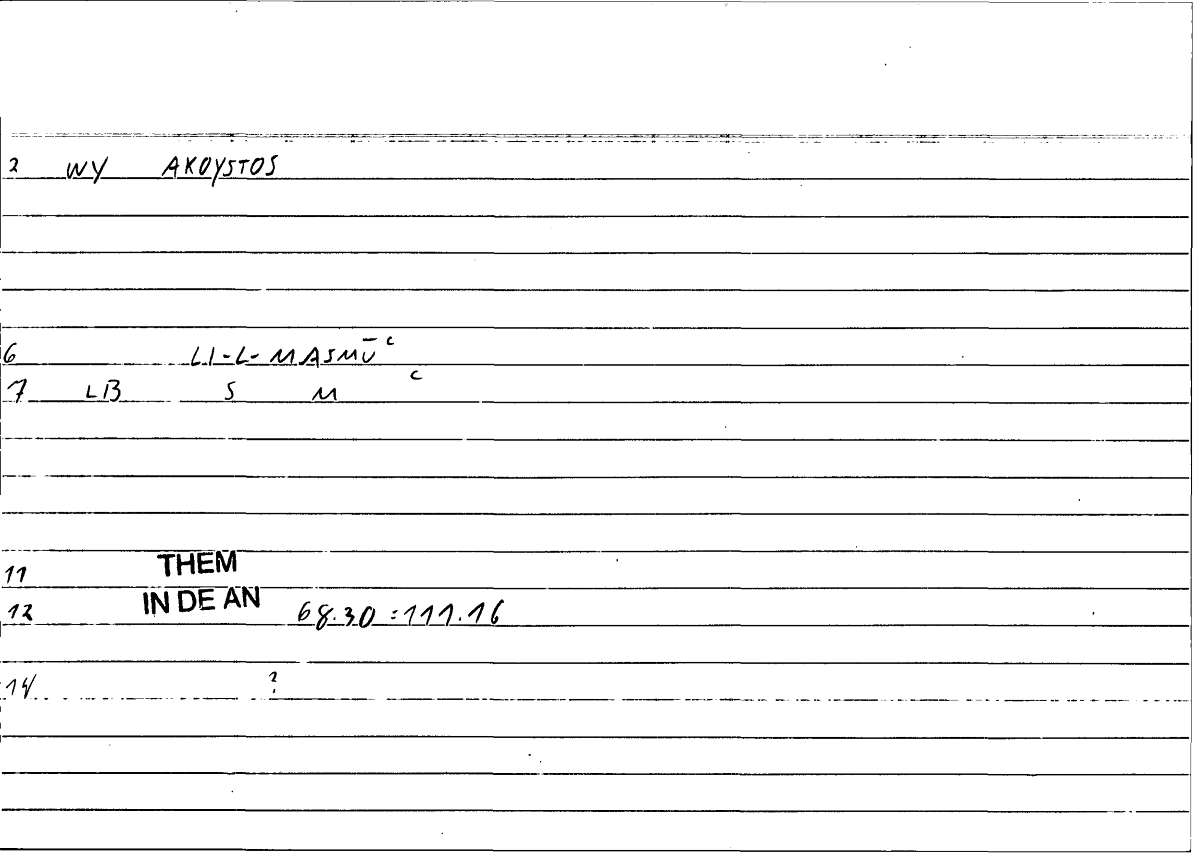 2 WY AKOYSTOS
6 LI-L-MASMŪʿ
7 LB S M ʿ
11 THEM
12 IN DE AN 68.30 = 111.16
14 ?